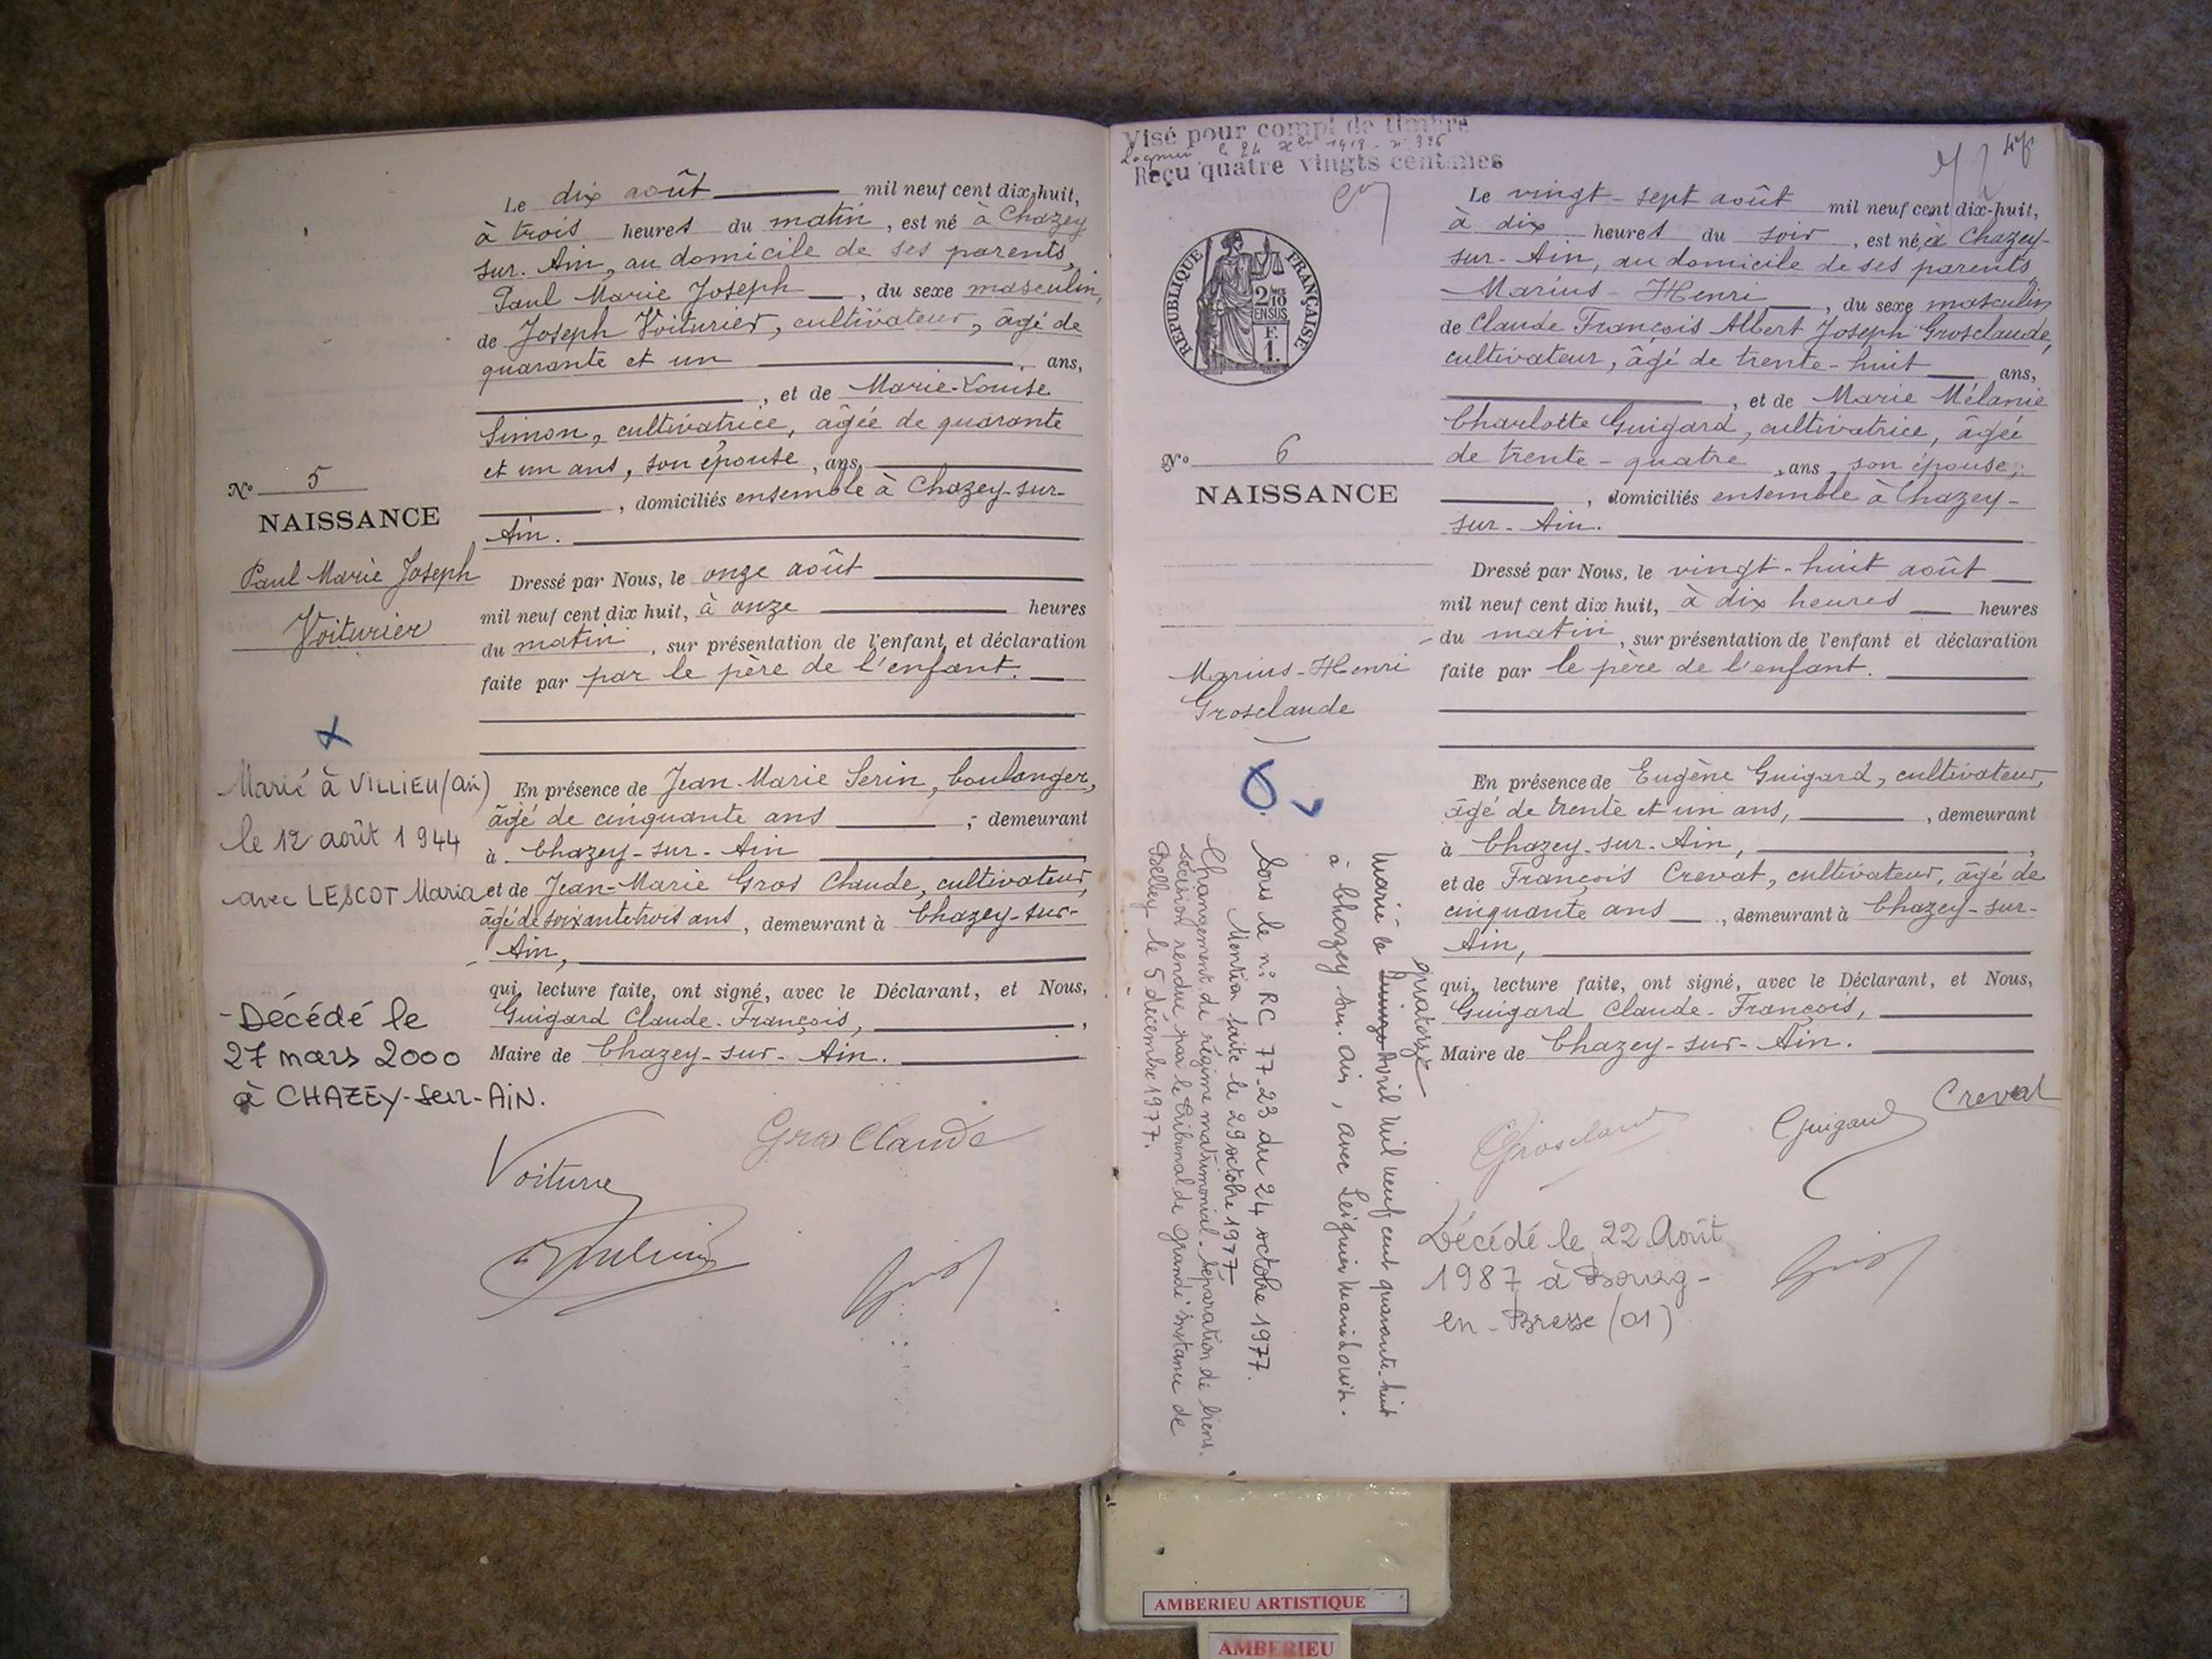 Le dix août mil neuf cent dix-huit,
à trois heures du matin, est né à Chazey
sur-Ain, au domicile de ses parents,
Paul Marie Joseph, du sexe masculin,
de Joseph Voiturier, cultivateur, âgé de
quarante et un ans,
, et de Marie-Louise
Simon, cultivatrice, âgée de quarante
et un ans, son épouse, ans,
, domiciliés ensemble à Chazey-sur-
Ain.
Dressé par Nous, le onze août
mil neuf cent dix huit, à onze heures
du matin, sur présentation de l'enfant et déclaration
faite par par le père de l'enfant.
En présence de Jean-Marie Serin, boulanger,
âgé de cinquante ans, demeurant
à Chazey-sur-Ain
et de Jean-Marie Gros Claude, cultivateur,
âgé de soixante trois ans, demeurant à Chazey-sur-
Ain,
qui, lecture faite, ont signé, avec le Déclarant, et Nous,
Guigard Claude-François,
Maire de Chazey-sur-Ain.
Gros Claude
N° 5
NAISSANCE
Paul Marie Joseph
Voiturier
Marié à VILLIEU (Ain)
le 12 août 1944
avec LESCOT Maria
Décédé le
27 mars 2000
à CHAZEY-sur-AIN.
Visé pour compl de timbre
Reçu quatre vingts centimes
47
RÉPUBLIQUE FRANÇAISE
2/10 EN SUS
F.
1.
Le vingt-sept août mil neuf cent dix-huit,
à dix heures du soir, est né à Chazey-
sur-Ain, au domicile de ses parents
Marius-Henri, du sexe masculin,
de Claude François Albert Joseph Grosclaude,
cultivateur, âgé de trente-huit ans,
, et de Marie Mélanie
Charlotte Guigard, cultivatrice, âgée
de trente-quatre, ans, son épouse,
, domiciliés ensemble à Chazey-
sur-Ain.
Dressé par Nous, le vingt-huit août
mil neuf cent dix huit, à dix heures heures
du matin, sur présentation de l'enfant et déclaration
faite par le père de l'enfant.
En présence de Eugène Guigard, cultivateur,
âgé de trente et un ans, demeurant
à Chazey-sur-Ain,
et de François Crevat, cultivateur, âgé de
cinquante ans, demeurant à Chazey-sur-
Ain,
qui, lecture faite, ont signé, avec le Déclarant, et Nous,
Guigard Claude-François,
Maire de Chazey-sur-Ain.
Crevat
Guigard
Décédé le 22 Août
1987 à Bourg-
en-Bresse (01)
N° 6
NAISSANCE
Marius-Henri
Grosclaude
quatorze
Marié le quinze Avril mil neuf cent quarante-huit
à Chazey sur Ain, avec
Sous le n° RC 77-23 du 24 octobre 1977.
Mention faite le 29 octobre 1977
Changement de régime matrimonial. Séparation de biens.
décision rendue par le Tribunal de Grande instance de
Belley le 5 décembre 1977.
AMBERIEU ARTISTIQUE
AMBERIEU